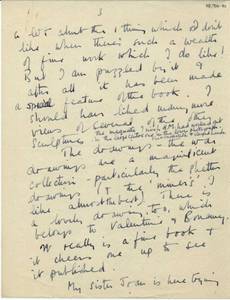 3
a lot about the 1 thing which I don't
like when there's such a wealth
of fine work which I do like!
But I am puzzled by it &
after all it has been made
a special feature of the book. I
should have liked many more
views of
sculpture
The drawings – the war
drawings are a magnificent
collection – particularly the shelters
(& the miners' I
like almost the best). There is
a lovely drawing, too, which
belongs to Valentine & Bonamy.
It really is a fine book &
it cheers one up to see
it published.
My sister Joan is here trying